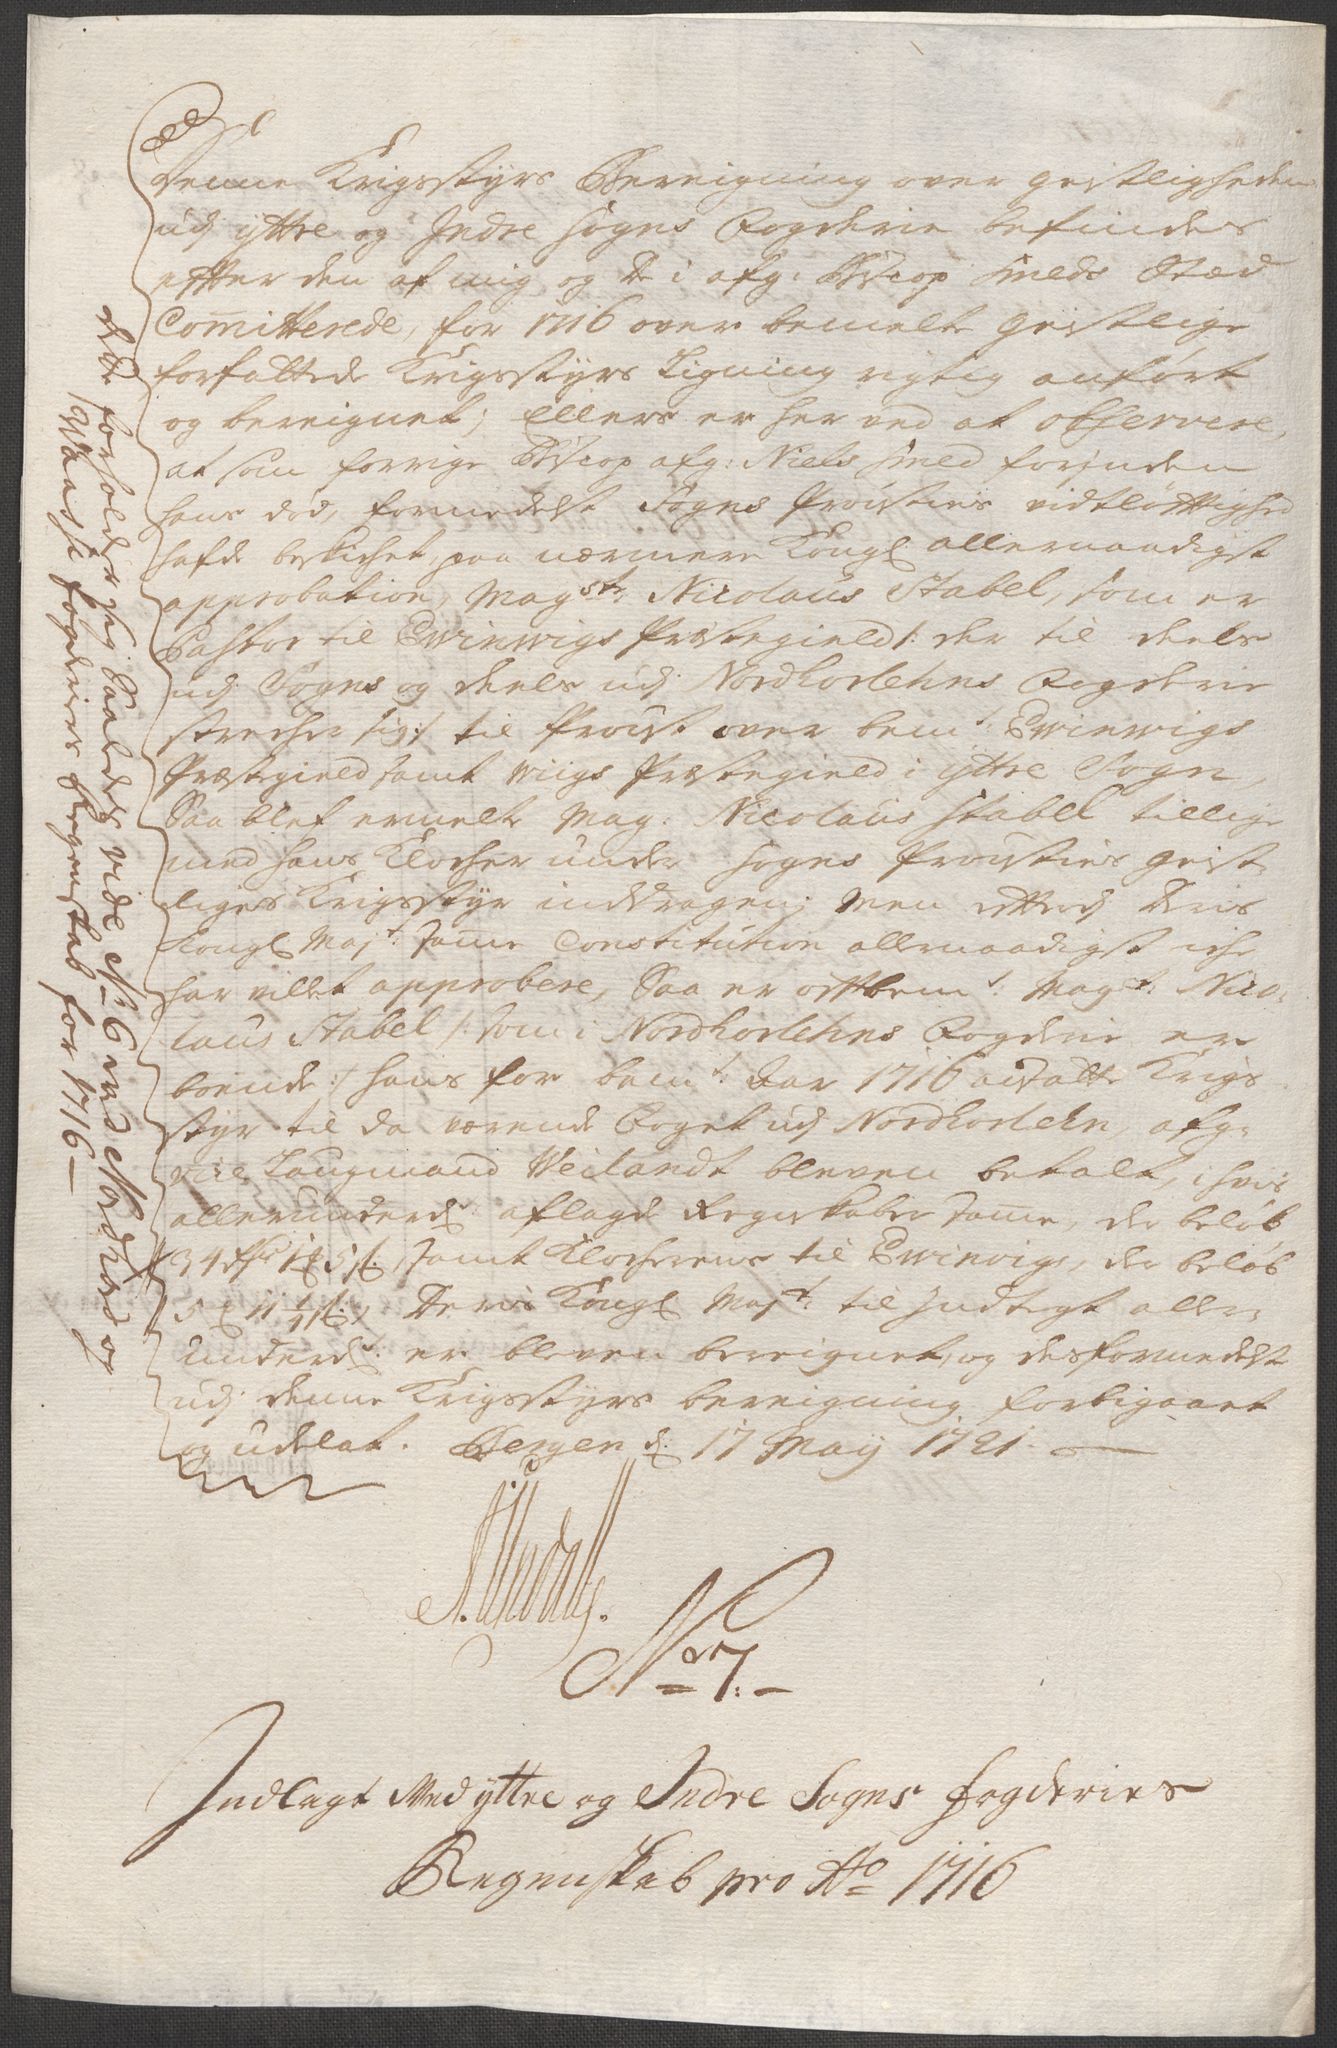 Denne Krigsstyrs Bereigning over geistligheden
udj ÿttre og Indre Sogns Fogderie befindes
effter den af mig og De i afg: Biscop Smeds Stæd
Committerede, for 1716 over bemelte geistlige
forfattede Krigsstÿrs Ligning rigtig anført
og bereignet; Ellers er her ved at observere,
at som forrige Biscop afg: Niels Smed forinden
hans død, formedelst Sogns Prousties vidtløftighed
hafde beskichet, paa nærmere Kongl allernaadigst
approbation, Magstr: Nicolaus Stabel, som er
Pastor til Ewinwigs Præstegield /: der til deels
udj Sogns og deels udj Nordhorlehns Fogderie
strecher sig :/ til Proust over bemt: Ewinwigs
Præstegield samt Wiigs Præstegield i ÿttre Sogn,
Saa blef ermelte Mag: Nicolaus Stabel tillige
med hans Klocher under Sogns Prousties geist-
liges Krigsstÿr inddragen; Men efftersom Deris
Kongl Majt: Samme Constitution allernaadigst iche
har villet approbere, Saa er offtbemt: Magst: Nico-
laus Stabel /: som i Nordhorlehns Fogderie er
boende :/ hans for bemt: Aar 1716 aistalte Krigs
stÿr til da værende Foget udj Nordhorlehn, afg:
vice Laugmand Weilandt bleven betalt, i hvis
allerunderdt: aflagde Regnskaber Samme, der beløb
34 Rdr 1 5 s, samt Klocherens til Ewinwigs, der beløb
5 11 s, Deris Kongl Majt: til Indtegt aller-
underdt: er bleven bereignet, og desformedelst
udj denne Krigsstÿrs bereigning forbigaaet
og udelat. Bergen d: 17 Maÿ 1721.
Dette forholder sig saaledes vide No 6 ved Nordhord og
Waasse fogderies Regenskab for 1716
No 7.
Indlagt Ved ÿttre og Indre Sogns fogderies
Regenskab pro Ao 1716